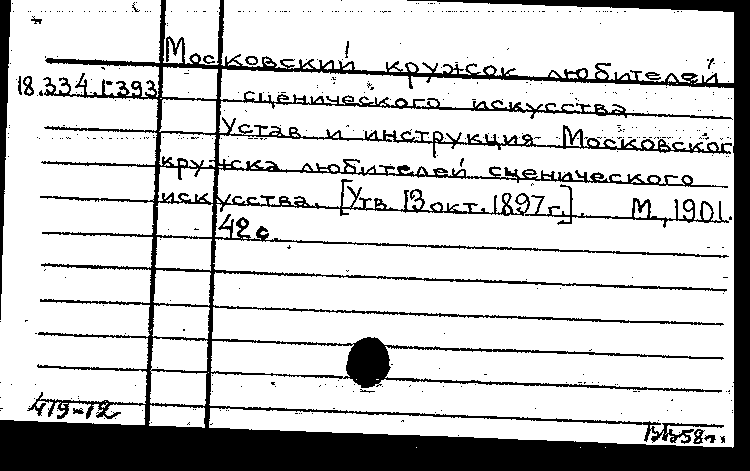 Московский кружок любителей
18.334.Г.393
сценического искусства
Устав и инструкция Московског
кружка любителей сценического
искусства. [Утв. 13 окт. 1897г.]. М., 1901.
42 с.
419-12